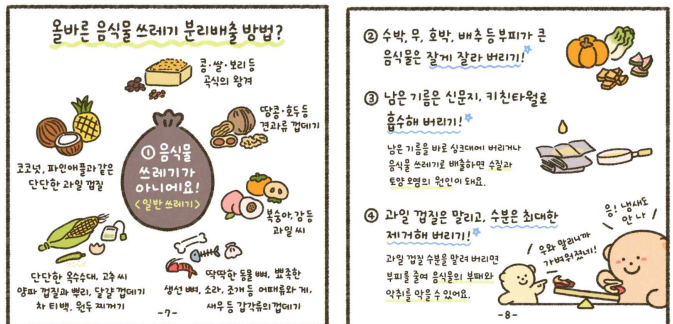 올바른 음식물 쓰레기 분리배출 방법?
콩·쌀·보리 등
곡식의 왕겨
땅콩·호두 등
견과류 껍데기
코코넛, 파인애플과 같은
단단한 과일 껍질
① 음식물
쓰레기가
아니에요!
<일반쓰레기>
복숭아, 감 등
과일 씨
단단한 옥수수대, 고추씨
양파 껍질과 뿌리, 달걀 껍데기
차 티백, 원두 찌꺼기
딱딱한 동물 뼈, 뾰족한
생선 뼈, 소라, 조개 등 어패류와 게,
새우 등 갑각류의 껍데기
-7-
② 수박, 무, 호박, 배추 등 부피가 큰
음식물은 잘게 잘라 버리기!
③ 남은 기름은 신문지, 키친타월로
흡수해 버리기!
남은 기름을 바로 싱크대에 버리거나
음식물 쓰레기로 배출하면 수질과
토양 오염의 원인이 돼요.
④ 과일 껍질은 말리고, 수분은 최대한
제거해 버리기!
과일 껍질 수분을 말려 버리면
부피를 줄여 음식물의 부패와
악취를 막을 수 있어요.
우와 말리니까
가벼워졌네!
응! 냄새도
안 나
-8-